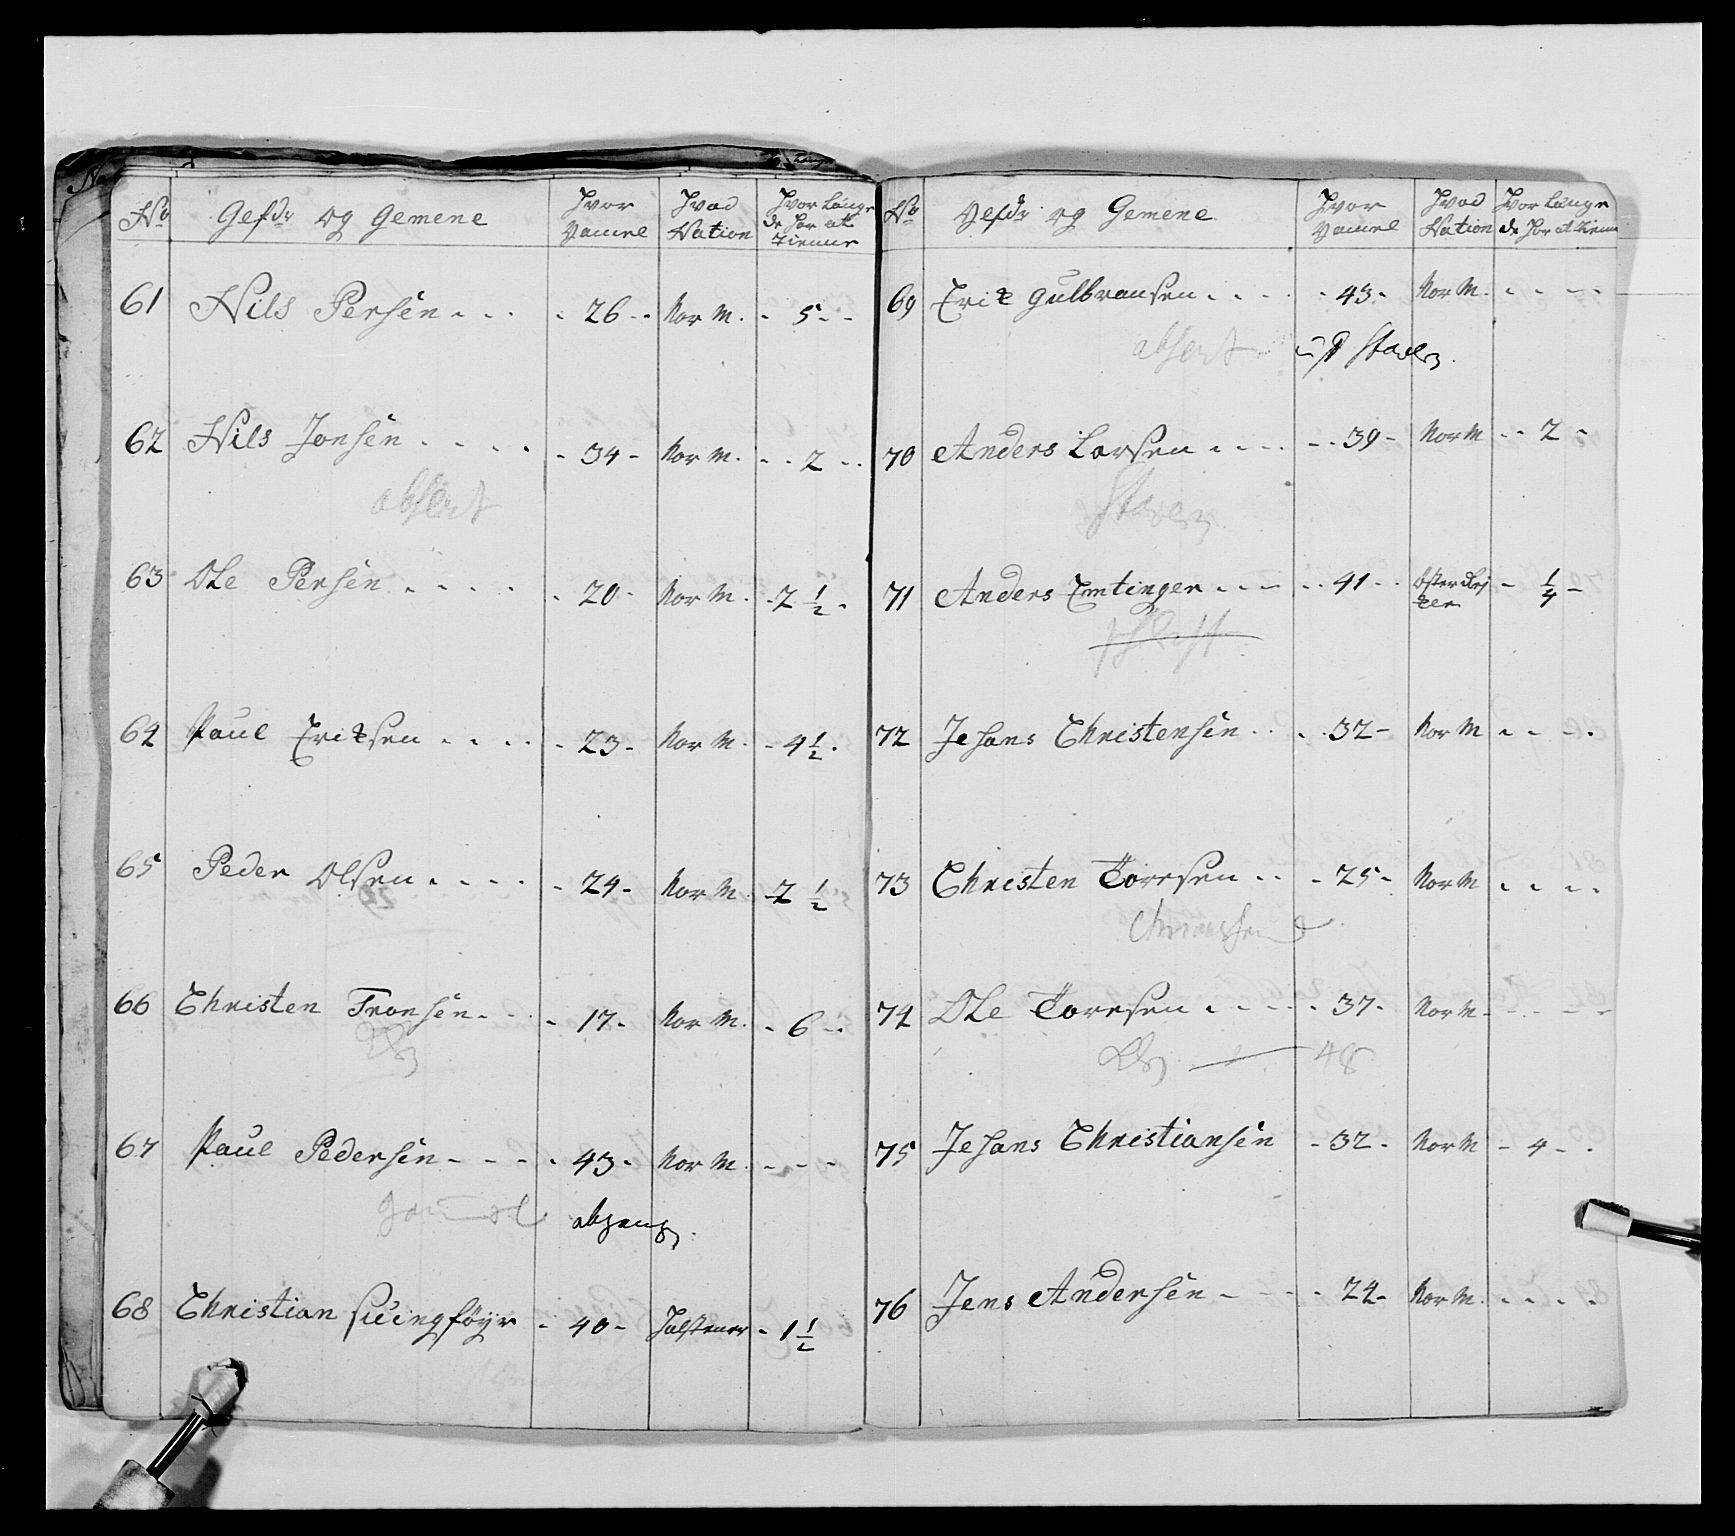 No Gefdr og Gemene Hvor Gamel Hvad Nation Hvor Länge de Har at tienne
61 Nils Persen 26 Nor M. 5
62 Nils Jonsen 34 Nor M. 2
absent
63 Ole Persen 20 Nor M. 2 1/2
64 Paul Eriksen 23 Nor M. 4 1/2
65 Peder Olsen 24 Nor M. 2 1/2
66 Christen Tronsen 17 Nor M. 6
67 Paul Pedersen 43 Nor M.
abgang
68 Christian 40 Holstener 1 1/2
No Gefdr og Gemene Hvor Gamel Hvad Nation Hvor Länge de Har at tienne
69 Erik Gulbransen 43 Nor M.
absent Staver
70 Anders Larsen 39 Nor M 2
Staver
71 Anders Emtinger 41 Østerrejker 1/4
72 Johans Christensen 32 Nor M
73 Christen Toresen 25 Nor M
74 Ole Toresen 37 Nor M
48
75 Johans Christiansen 32 Nor M 4
76 Jens Andersen 24 Nor M.